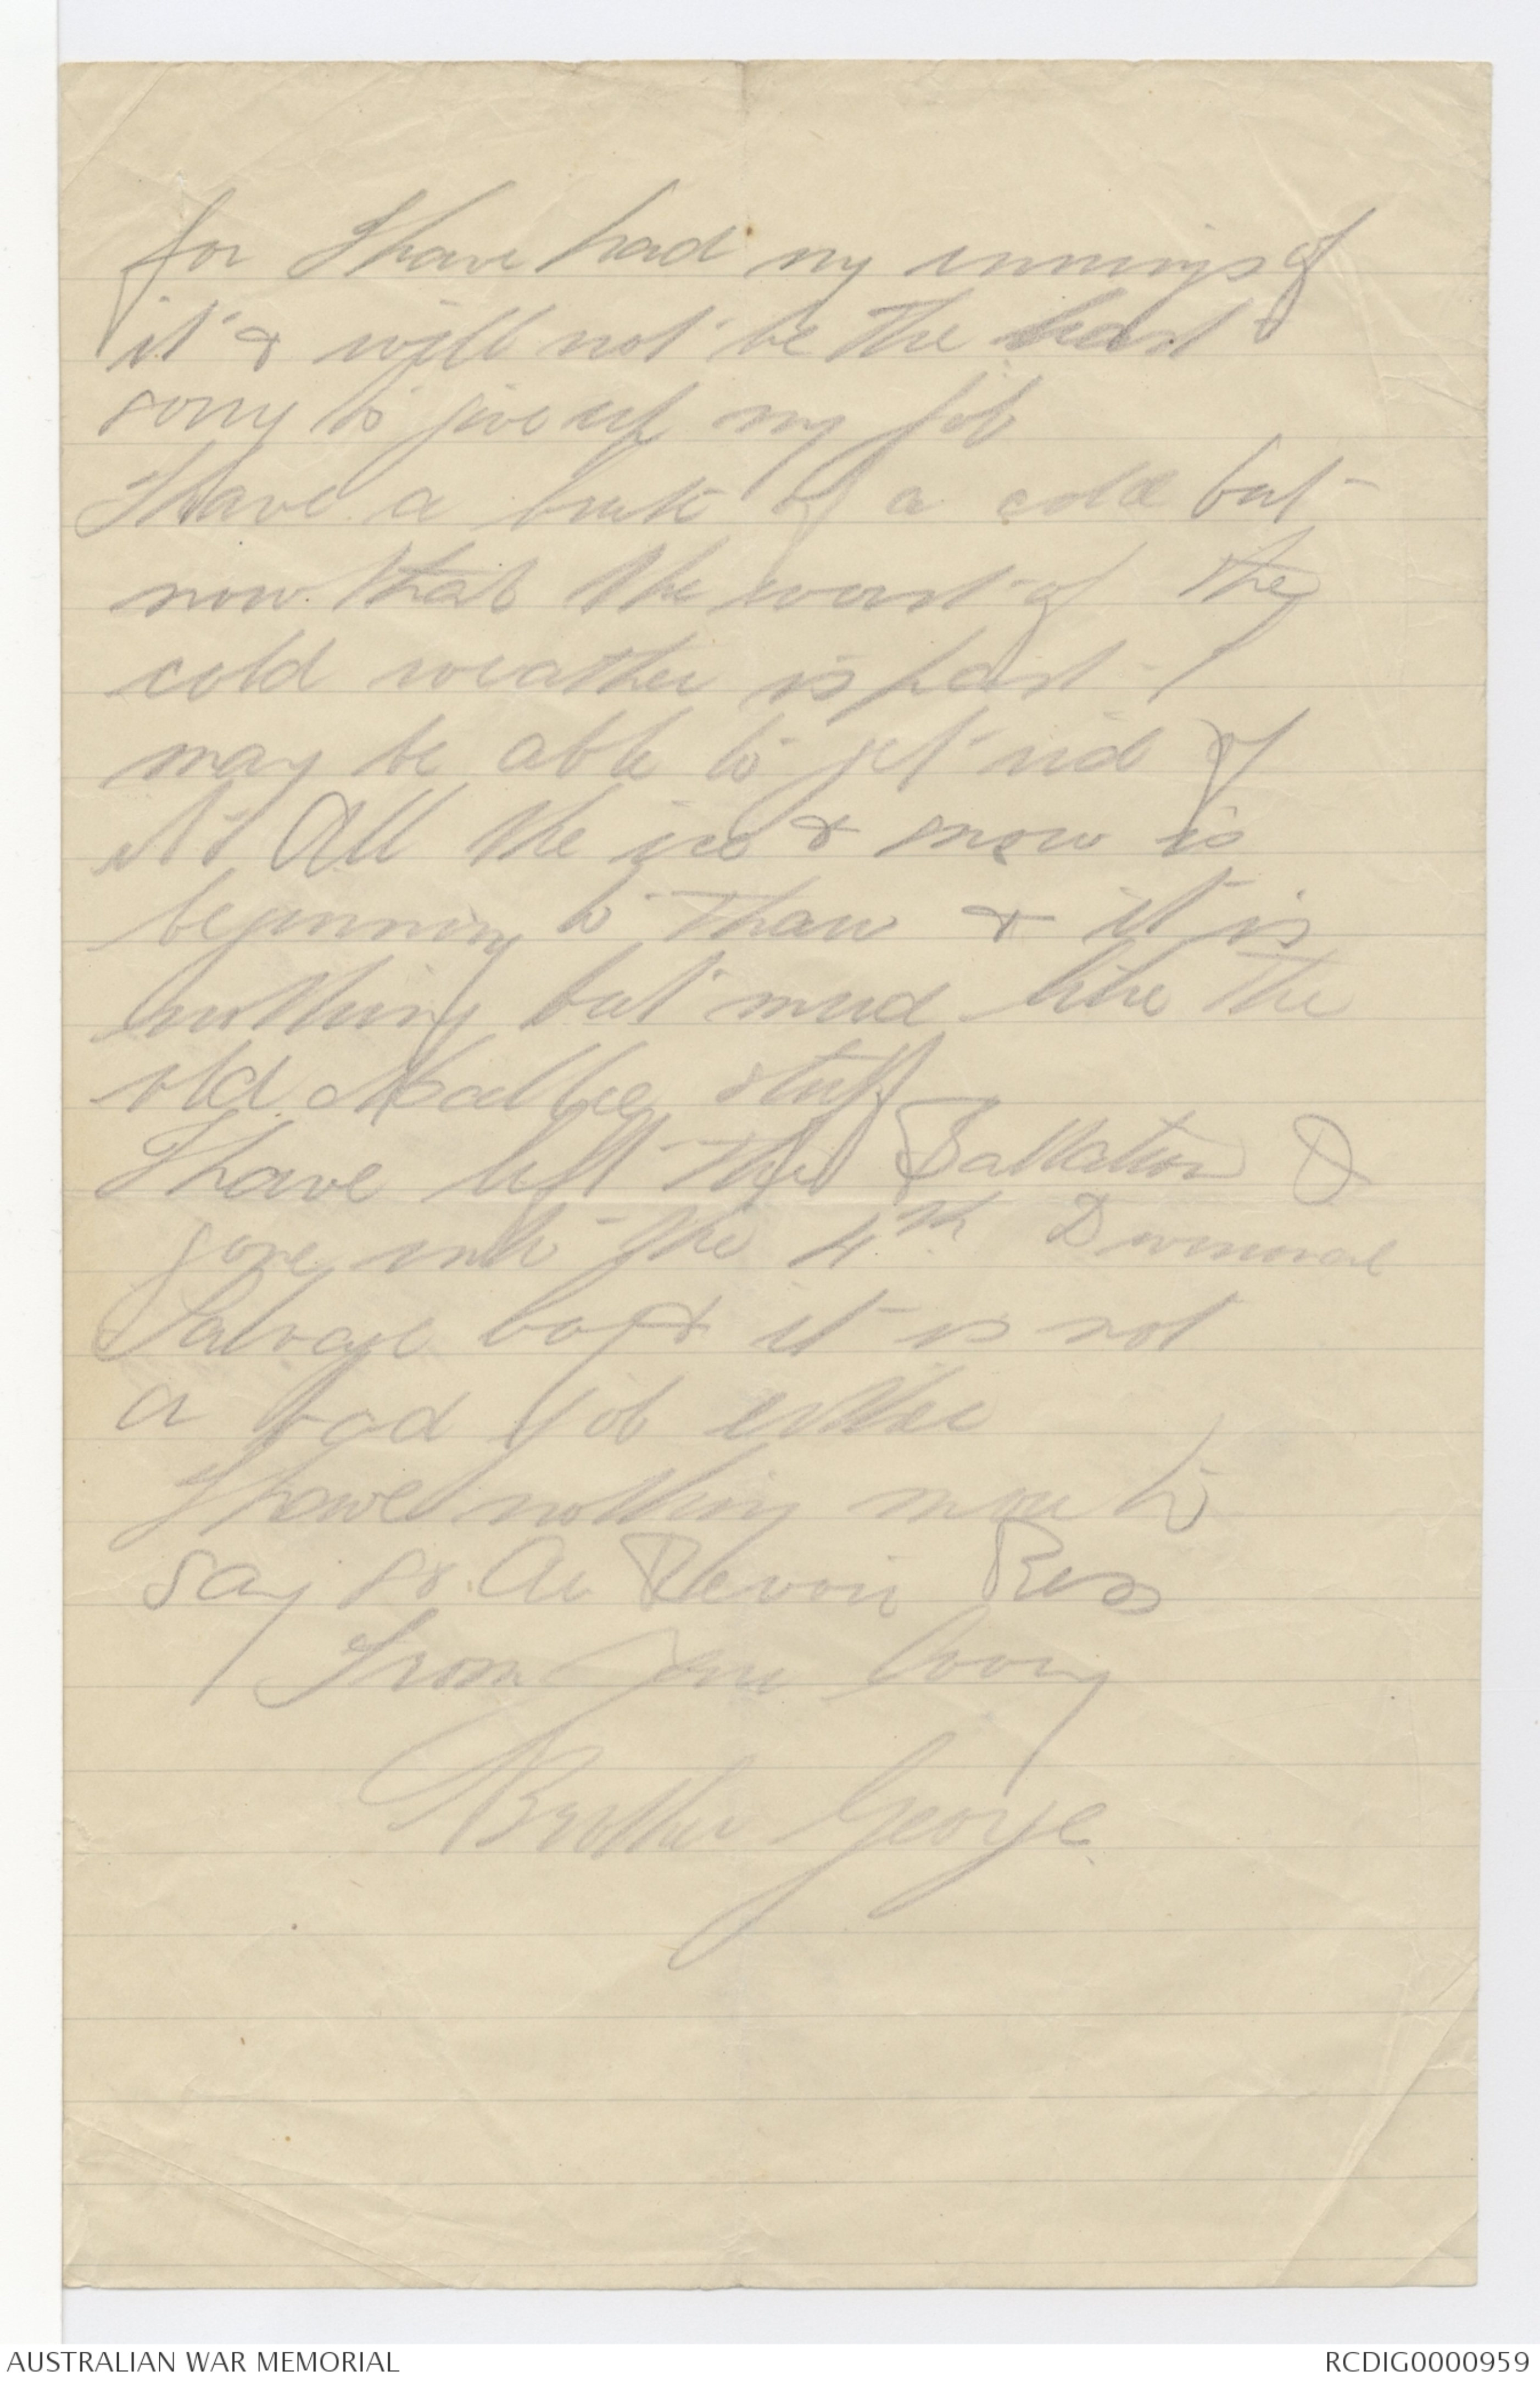 for I have had my innings of
it & will not be the least
sorry to give up my job
I have a brute of a cold but
now that the worst of the
cold weather is past I
may be able to get rid of
it. All the ice & snow is
beginning to thaw & it is
nothing but mud like the
old stuff
I have left the Battalion &
gone into the 4th Divisional
Salvage Coy & it is not
a bad job either
I have nothing more to
say so. Au Revoir Ress
From Your loving
Brother George.
AUSTRALIAN WAR MEMORIAL
RCDIG0000959